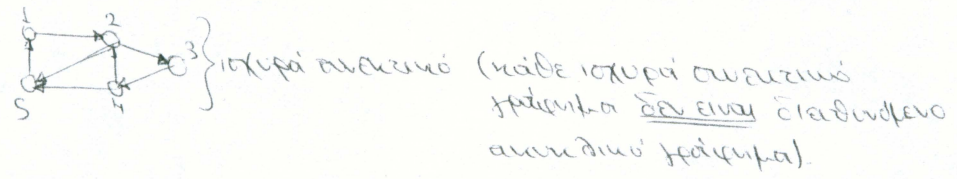 1 2
3 } ισχυρά συνεκτικό (κάθε ισχυρά συνεκτικό
5 4 γράφημα δεν είναι διευθυνόμενο
ακυκλικό γράφημα).